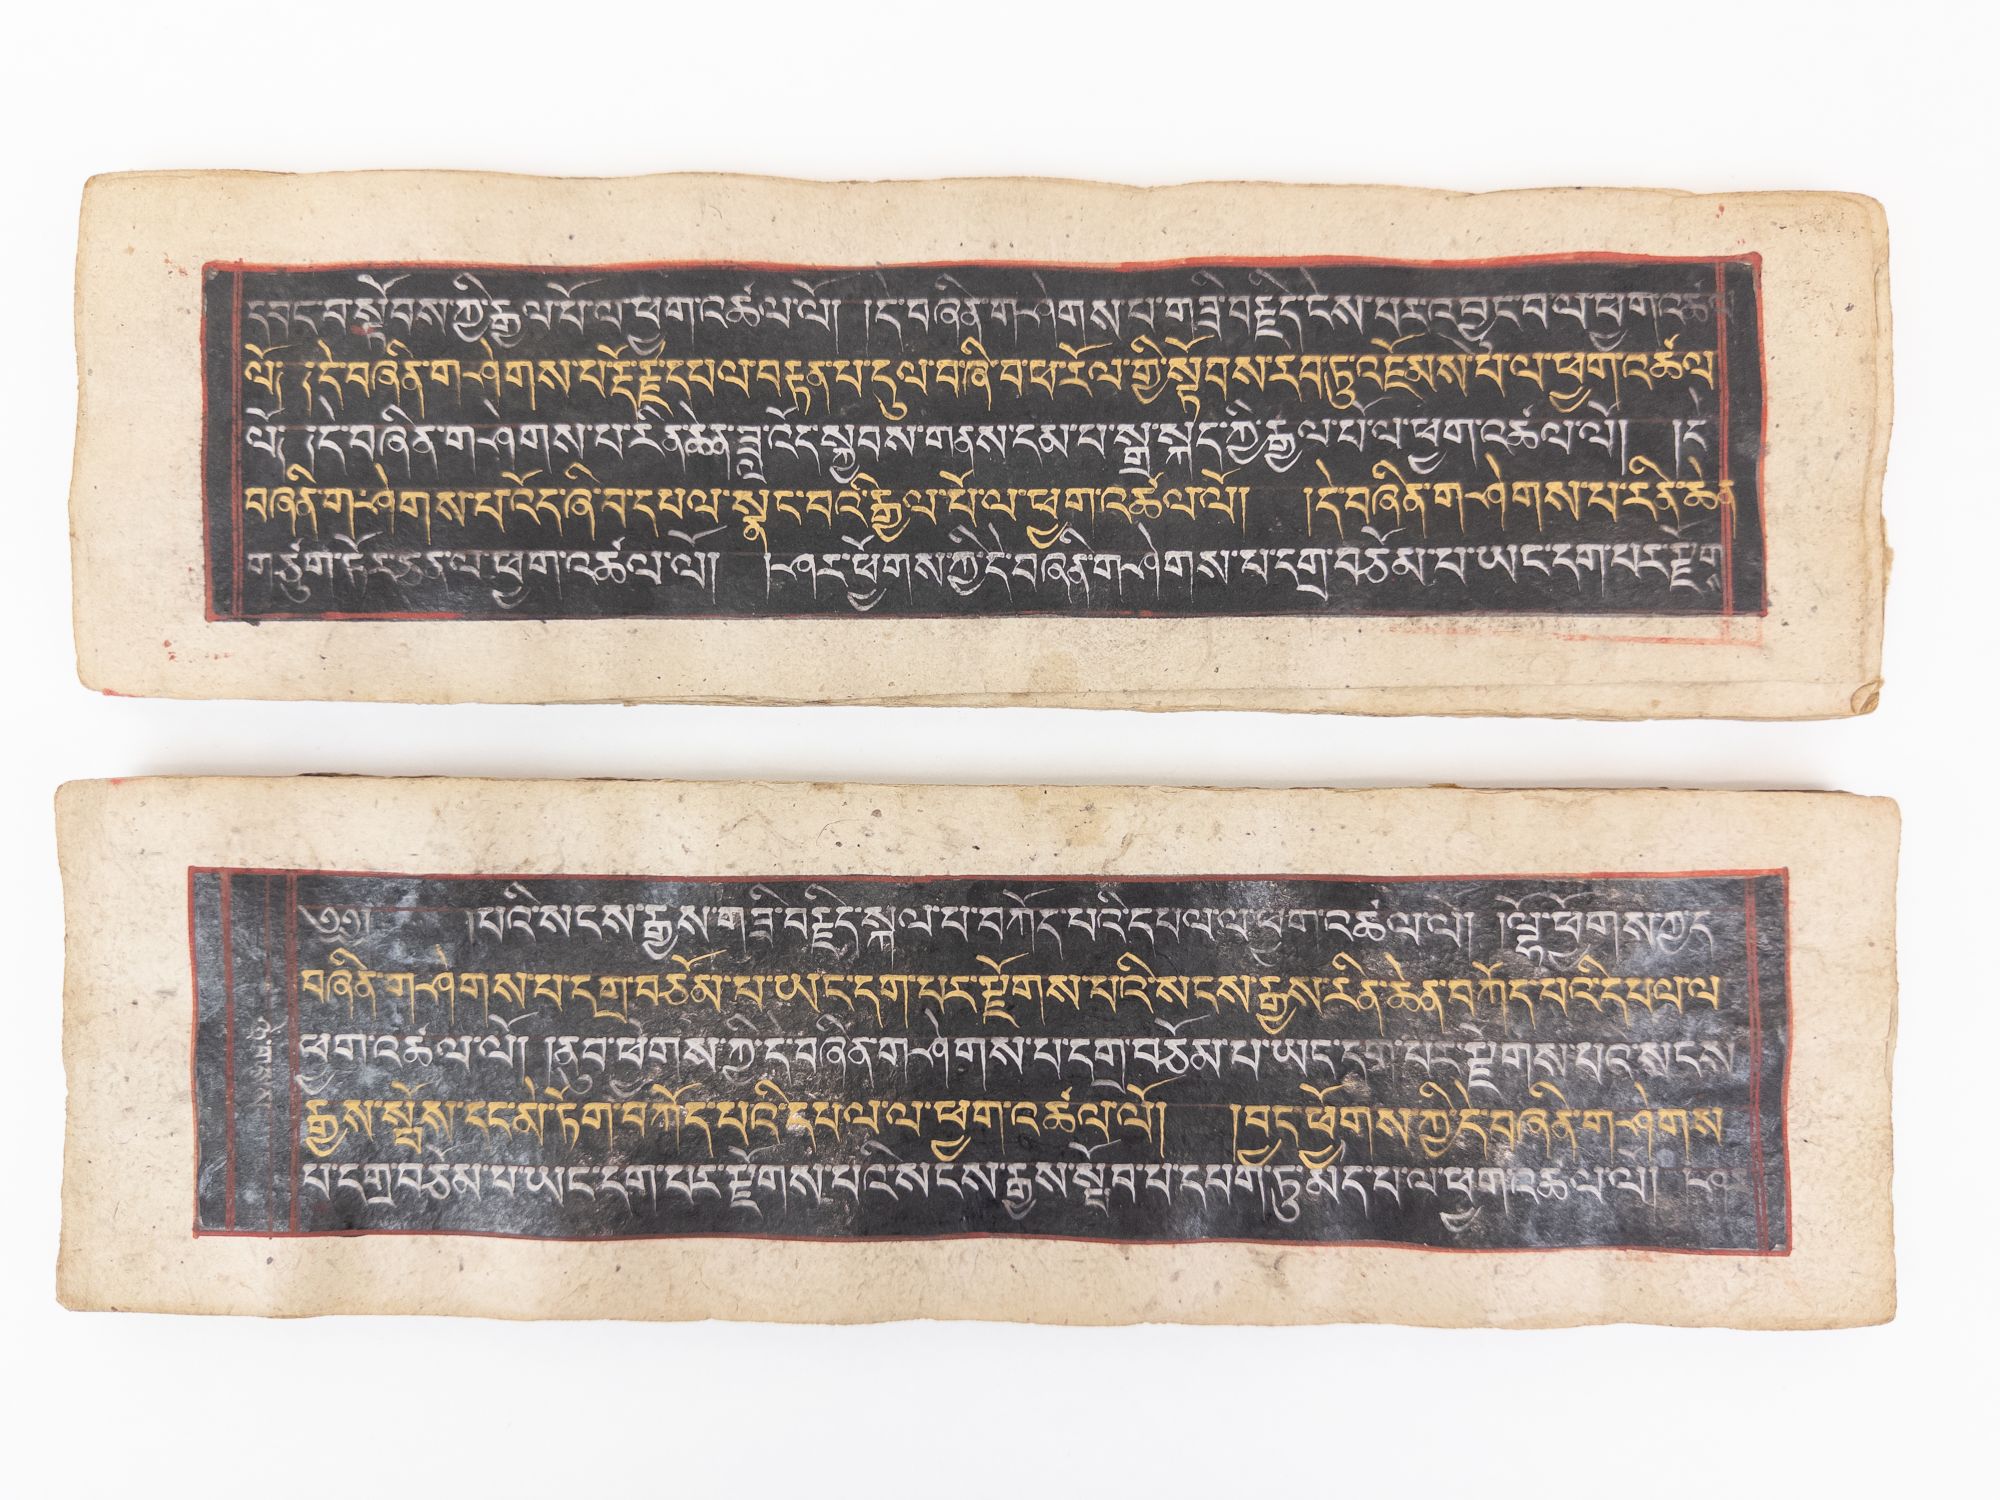 དབང་བསྟོབས་ཀྱི་རྒྱལ་པོ་ལ་ཕྱག་འཚལ་ལོ། །དེ་བཞིན་གཤེགས་པ་གཟི་བརྗིད་ངེས་པར་འབྱུང་བ་ལ་ཕྱག་འཚལ
ལོ། །དེ་བཞིན་གཤེགས་པ་རྡོ་རྗེ་དཔལ་བརྟན་པ་དུལ་བ་ཞི་བ་ཕ་རོལ་གྱི་སྟོབས་རབ་ཏུ་འཇོམས་པ་ལ་ཕྱག་འཚལ
ལོ། །དེ་བཞིན་གཤེགས་པ་རིན་ཆེན་ཟླ་འོད་སྐྱབས་གནས་དམ་པ་སྒྲ་སྐད་ཀྱི་རྒྱལ་པོ་ལ་ཕྱག་འཚལ་ལོ། །དེ
བཞིན་གཤེགས་པ་འོད་ཞི་བ་དཔལ་སྣང་བའི་རྒྱལ་པོ་ལ་ཕྱག་འཚལ་ལོ། །དེ་བཞིན་གཤེགས་པ་རིན་ཆེན
གཙུག་ཏོར་ཅན་ལ་ཕྱག་འཚལ་ལོ། །ཤར་ཕྱོགས་ཀྱི་དེ་བཞིན་གཤེགས་པ་དགྲ་བཅོམ་པ་ཡང་དག་པར་རྫོག
།པའི་སངས་རྒྱས་གཟི་བརྗིད་སྐལ་པ་བཀོད་པའི་དཔལ་ལ་ཕྱག་འཚལ་ལོ། །ལྷོ་ཕྱོགས་ཀྱི་ད
བཞིན་གཤེགས་པ་དགྲ་བཅོམ་པ་ཡང་དག་པར་རྫོགས་པའི་སངས་རྒྱས་རིན་ཆེན་བཀོད་པའི་དཔལ་ལ
ཕྱག་འཚལ་ལོ། །ནུབ་ཕྱོགས་ཀྱི་དེ་བཞིན་གཤེགས་པ་དགྲ་བཅོམ་པ་ཡང་དག་པར་རྫོགས་པའི་སངས
རྒྱས་སྤོས་དང་མེ་ཏོག་བཀོད་པའི་དཔལ་ལ་ཕྱག་འཚལ་ལོ། །བྱང་ཕྱོགས་ཀྱི་དེ་བཞིན་གཤེགས
པ་དགྲ་བཅོམ་པ་ཡང་དག་པར་རྫོགས་པའི་སངས་རྒྱས་སྤོབ་པ་དཔག་ཏུ་མེད་པ་ལ་ཕྱག་འཚལ་ལོ།